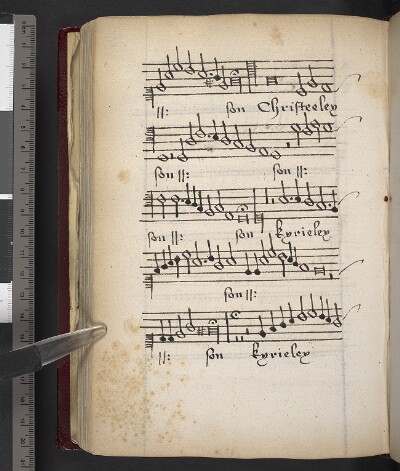 ||: son Christeeley
son ||: son ||:
son ||: son kyrieley
son ||:
||: son kyrieley